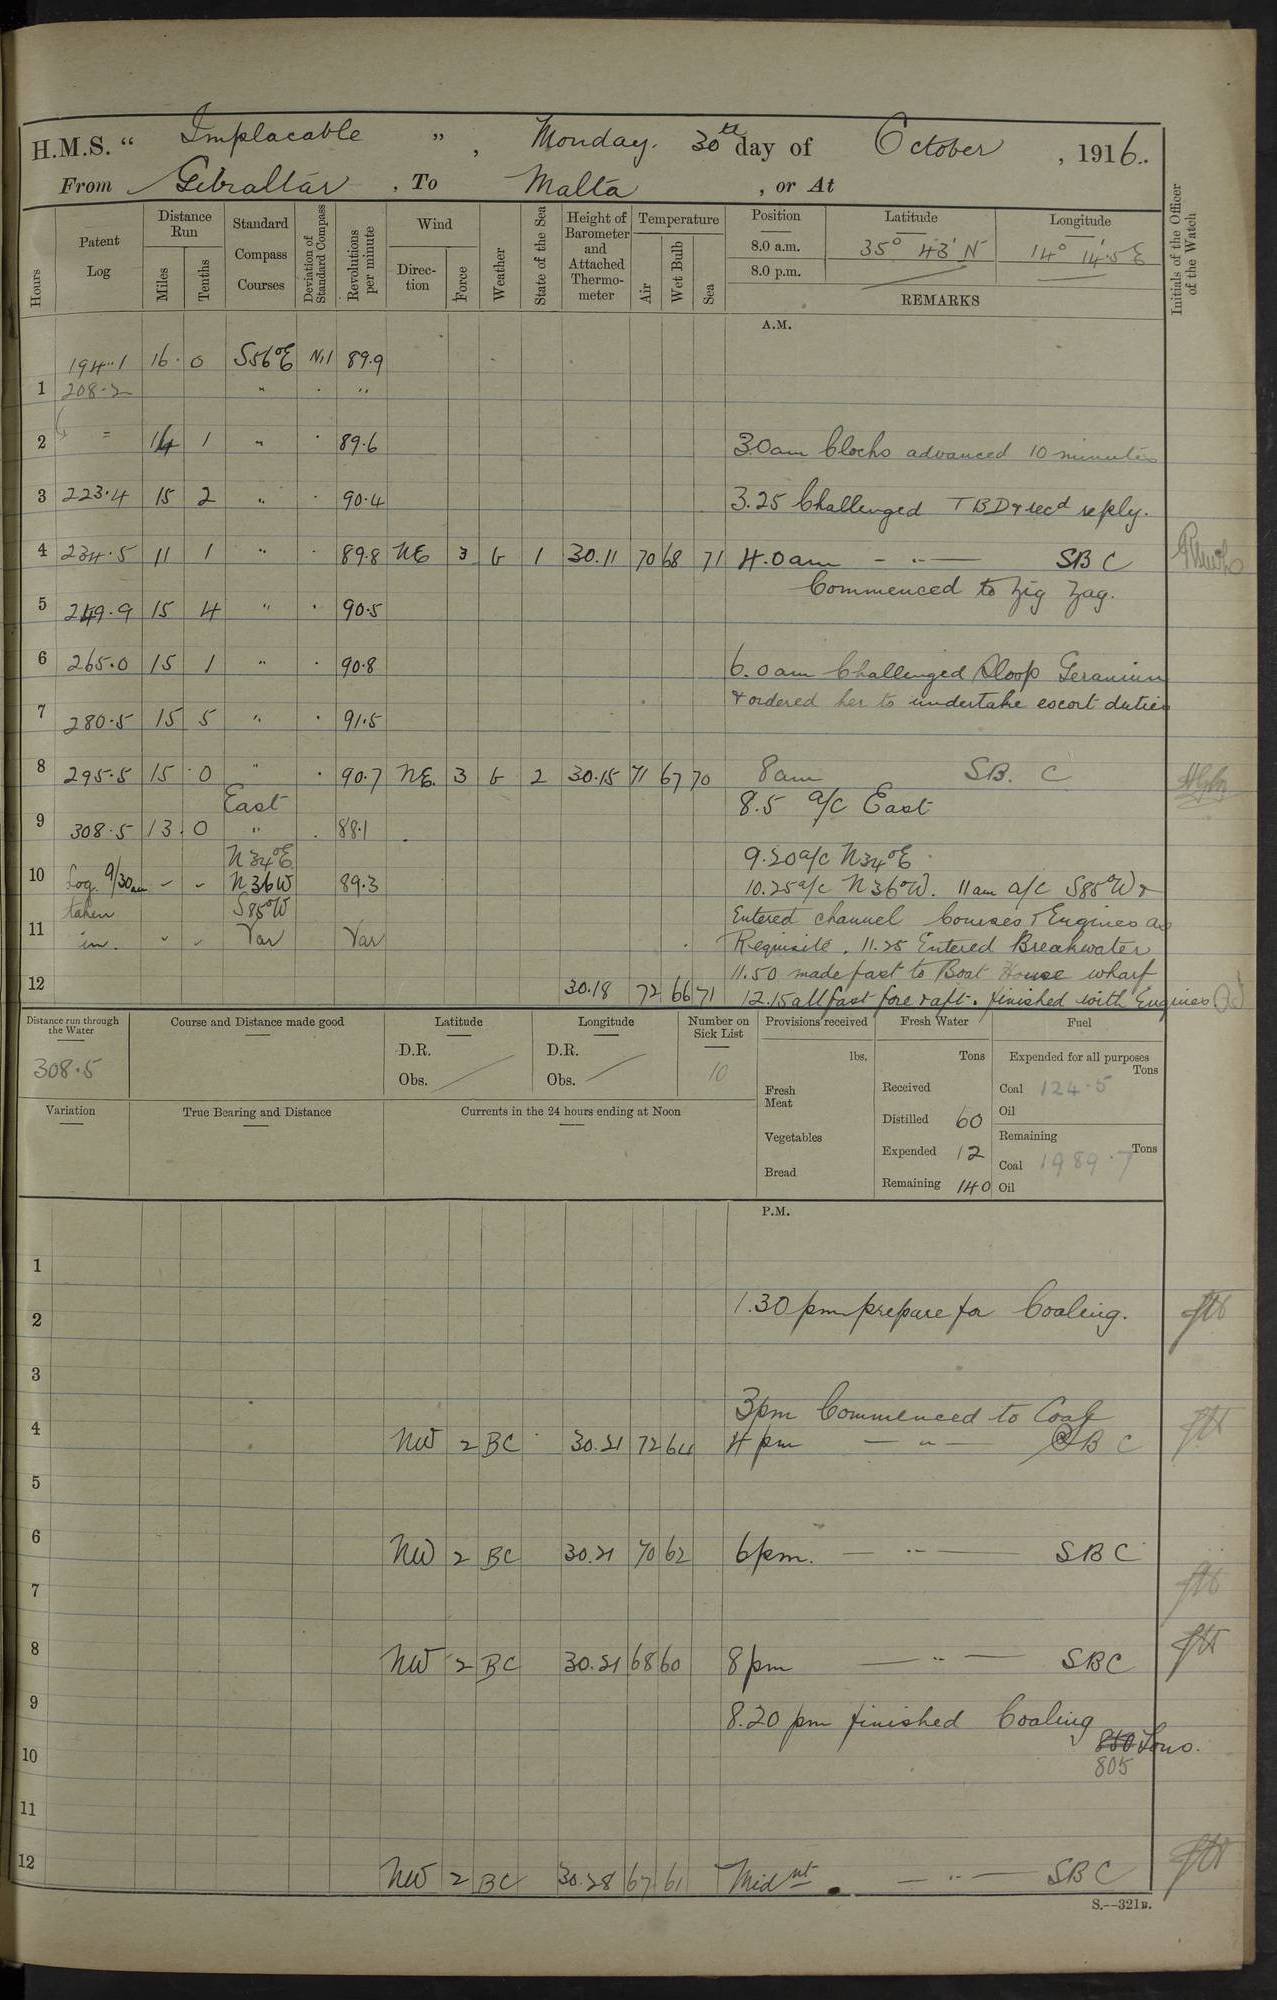 H.M.S. “ Implacable ” , Monday. 30th day of October , 1916.
From Gibraltar , To Malta , or At
Hours
Patent Log
Distance Run
Miles
Tenths
Standard Compass Courses
Deviation of Standard Compass
Revolutions per minute
Wind
Direction
Force
Weather
State of the Sea
Height of Barometer and Attached Thermometer
Temperature
Air
Wet Bulb
Sea
Position
Latitude
Longitude
8.0 a.m. 35° 43' N 14° 14'.5 E
8.0 p.m.
REMARKS
Initials of the Officer of the Watch
A.M.
194.1 16 . 0 S56°E Nil 89.9
1 208.2 " . "
2 " 14 1 " . 89.6
3.0am Clocks advanced 10 minutes
3 223.4 15 2 " . 90.4 3.25 Challenged TBD & recd reply.
4 234.5 11 1 " . 89.8 NE 3 b 1 30.11 70 68 71 4.0am — " — SBC
Commenced to Zig Zag.
5 249.9 15 4 " . 90.5
6 265.0 15 1 " . 90.8 6.0am Challenged Sloop Geranium
& ordered her to undertake escort duties
7 280.5 15 5 " . 91.5
8 295.5 15 . 0 " . 90.7 NE. 3 b 2 30.15 71 67 70 8am SB. C
East 8.5 a/c East
9 308.5 13 . 0 " . 88.1
N34°E 9.20 a/c N34°E
10 Log 9/30am - - N36W 89.3 10.25 a/c N36°W. 11am a/c S85°W &
taken S85°W Entered channel Courses & Engines as
11 in. " " Var Var Requisite. 11.25 Entered Breakwater
11.50 made fast to Boat House wharf
12 30.18 72 66 71 12.15 all fast fore & aft. finished with Engines
Distance run through the Water
308.5
Course and Distance made good
Latitude
D.R.
Obs.
Longitude
D.R.
Obs.
Number on Sick List
10
Provisions received
lbs.
Fresh Meat
Vegetables
Bread
Fresh Water
Tons
Received
Distilled 60
Expended 12
Remaining 140
Fuel
Expended for all purposes
Tons
Coal 124.5
Oil
Remaining
Tons
Coal 1989.7
Oil
Variation
True Bearing and Distance
Currents in the 24 hours ending at Noon
P.M.
1
1.30 pm prepare for Coaling.
2
3
3pm Commenced to Coal
4 NW 2 BC 30.21 72 64 4 pm — " — SBC
5
6 NW 2 BC 30.21 70 62 6pm. — " — SBC
7
8 NW 2 BC 30.21 68 60 8pm — " — SBC
9 8.20 pm finished Coaling
10 850 Tons.
805
11
12 NW 2 BC 30.28 67 61 Midnt — " — SBC
S.--321B.